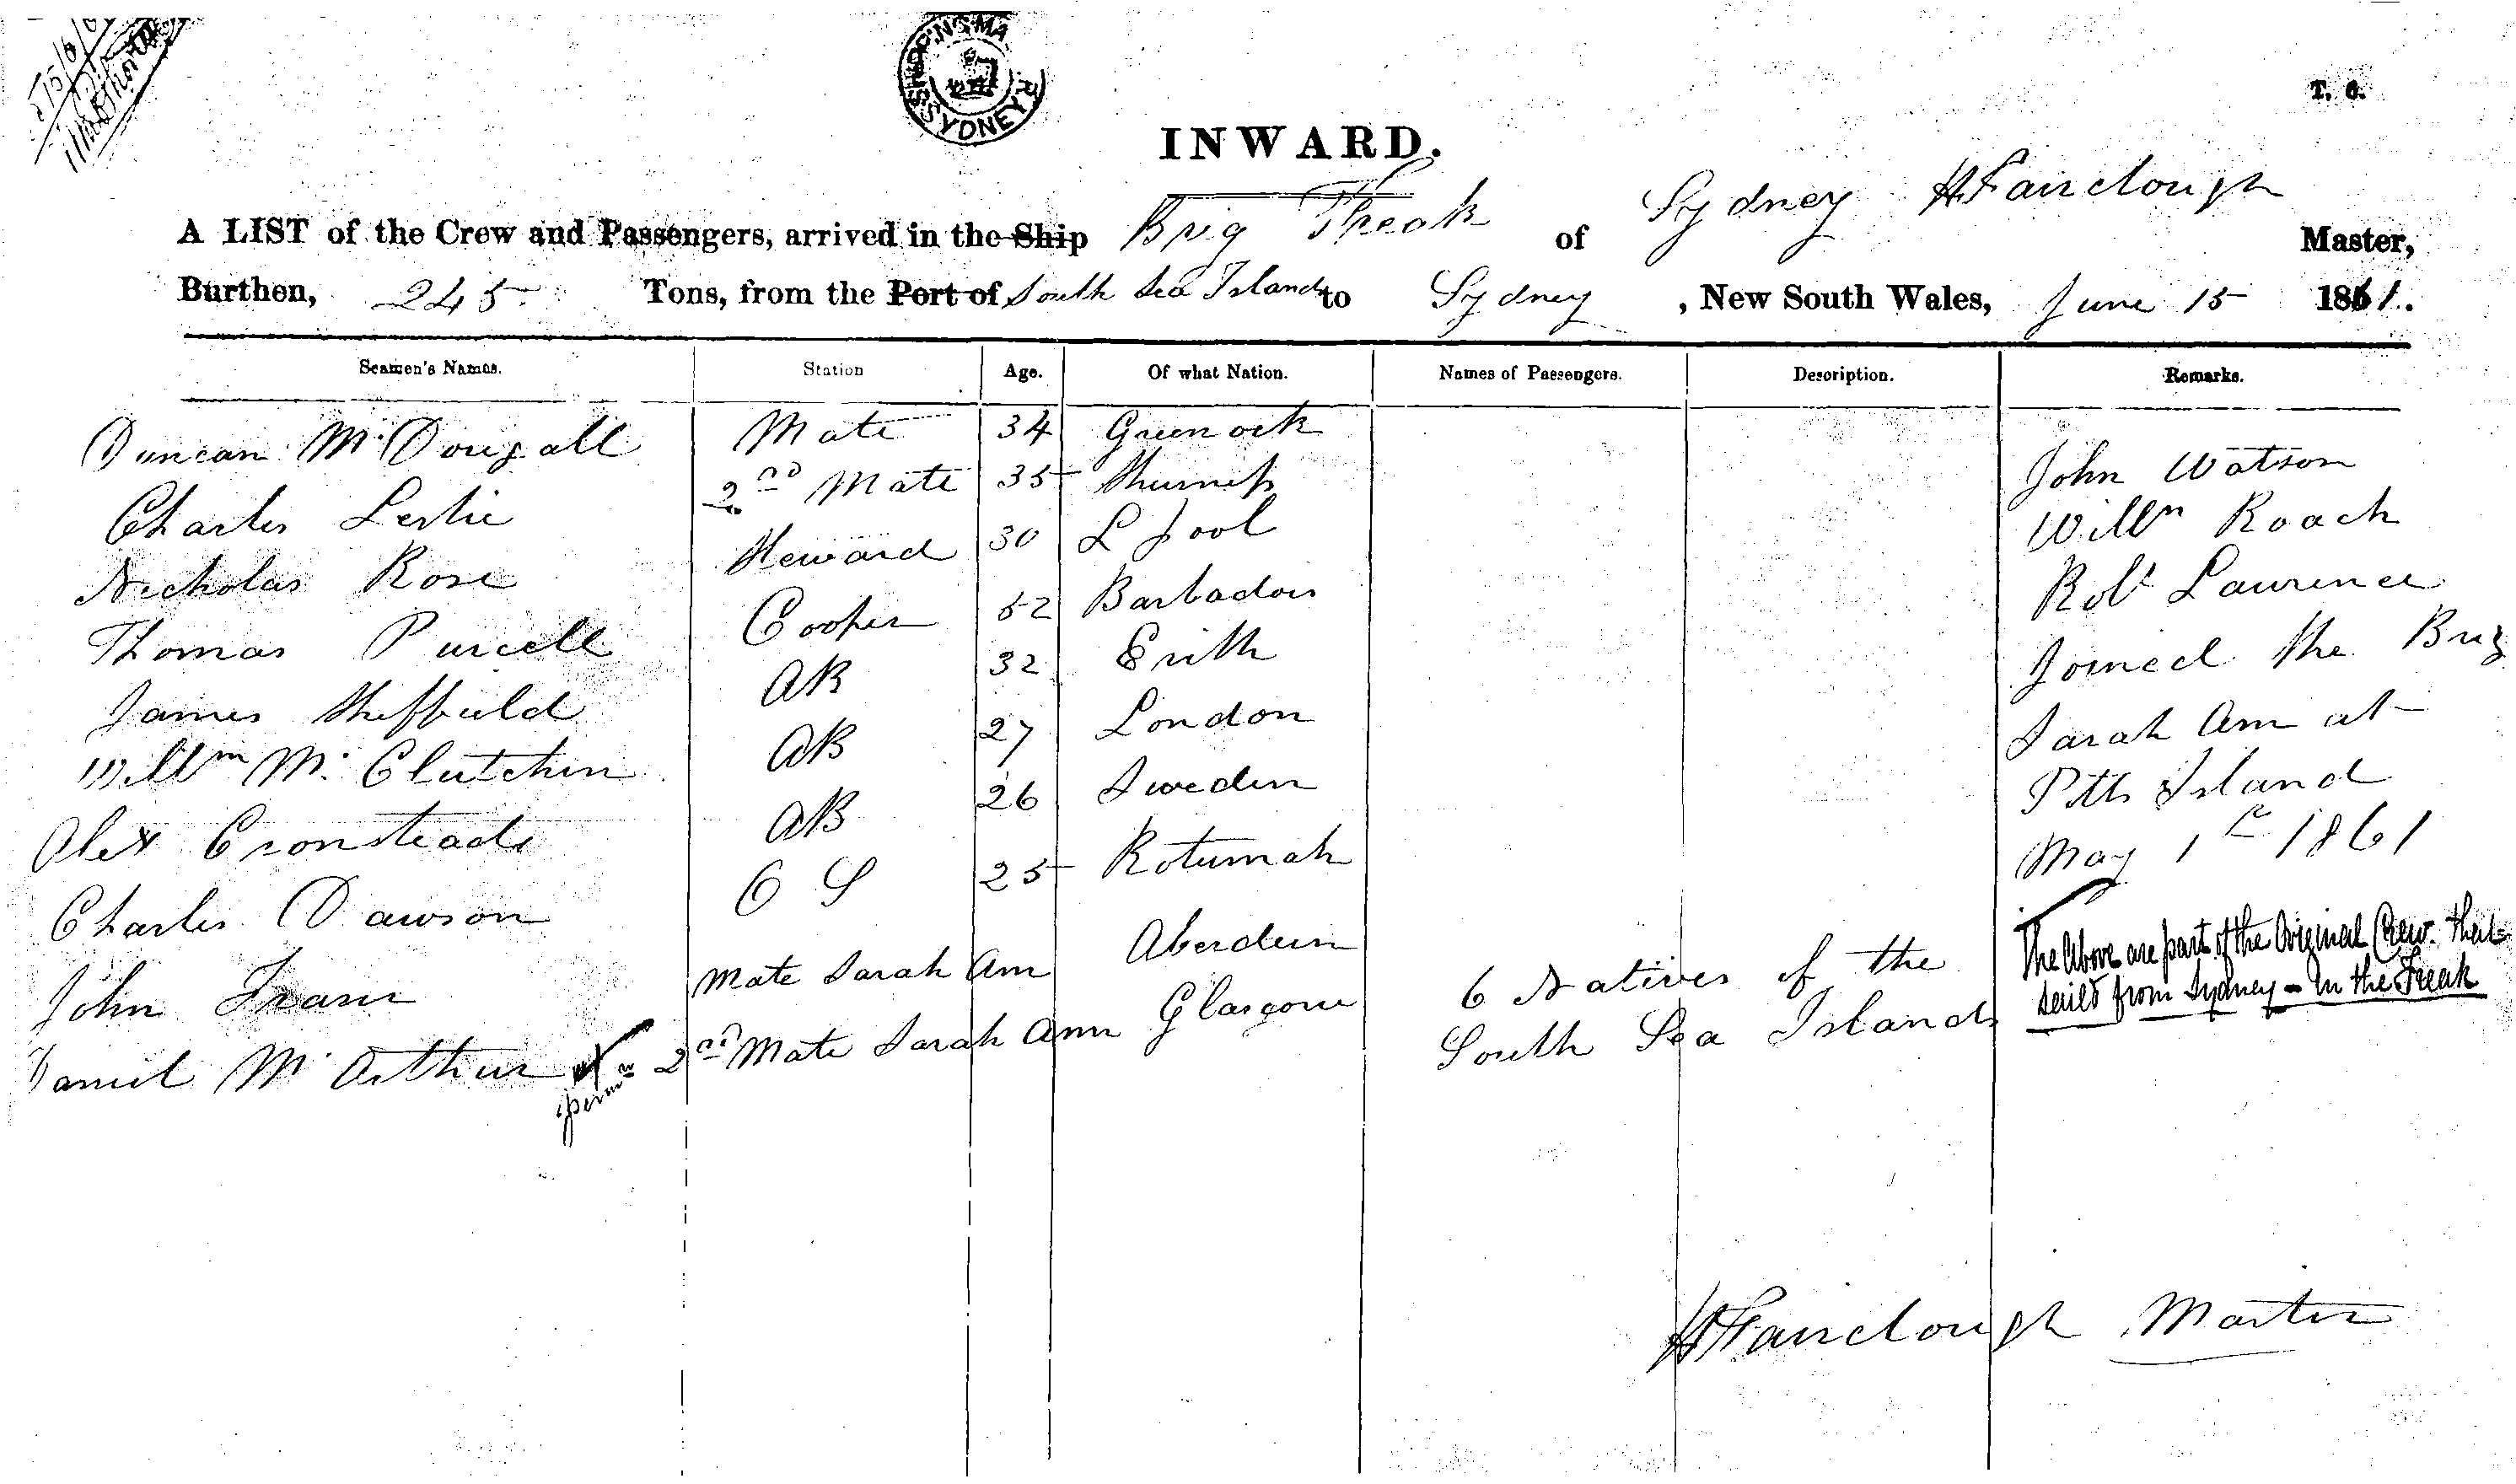 SHIPPING MA R SYDNEY
T. G.
INWARD.
A LIST of the Crew and Passengers, arrived in the Ship Brig Freak of Sydney H Fairclough Master,
Burthen, 245 Tons, from the Port of South Sea Islands to Sydney, New South Wales, June 15 1861.
Seamen's Names. Station Age. Of what Nation. Names of Passengers. Description. Remarks.
Duncan Mc Dougall Mate 34 Greenock
Charles Leslie 2nd Mate 35
Nicholas Rose Steward 30 L Pool
Thomas Purcell Cooper 52 Barbadoes
James Sheffield AB 32 Erith
Willm Mc Clutchin AB 27 London
Alex Cronsteadt AB 26 Sweden
Charles Dawson O S 25 Rotumah
John Mate Sarah Ann Aberdeen
Daniel Mc Arthur 2nd Mate Sarah Ann Glasgow
6 Natives of the
South Sea Islands
John Watson
Willm Roach
Robt Lawrence
Joined the Brig
Sarah Ann at
Pitts Island
May 1st 1861
The Above are part of the Original Crew that
sailed from Sydney - In the Freak
H Fairclough Master